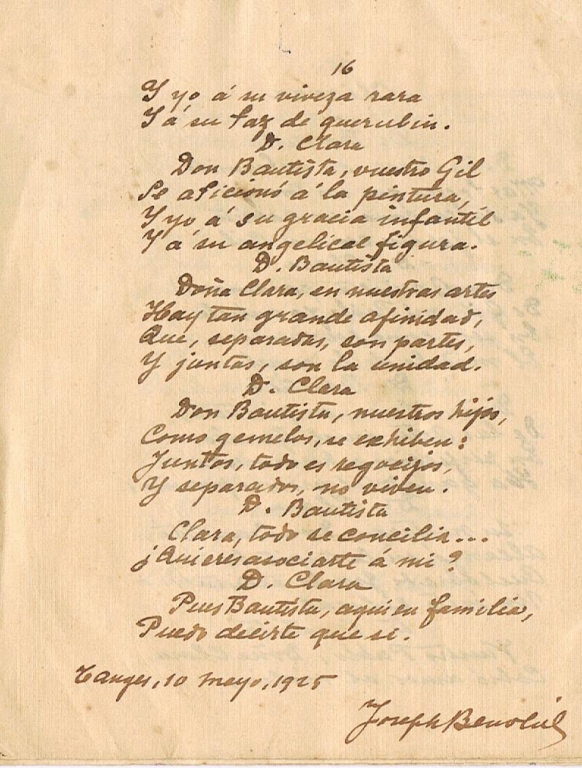 16
Y yo á su viveza rara
Y á su faz de querubin.
D. Clara
Don Bautista, vuestro Gil
Se aficionó á la pintura,
Y yo á su gracia infantil
Y á su angelical figura.
D. Bautista
Doña Clara, en nuestras artes
Hay tan grande afinidad,
Que, separadas, son partes,
Y juntas, son la unidad.
D. Clara
Don Bautista, nuestros hijos,
Como gemelos, se exhiben:
Juntos, todo es regocijos,
Y separados, no viven.
D. Bautista
Clara, todo se concilia...
¿Quieres asociarte á mi?
D. Clara
Pues Bautista, aqui en familia,
Puedo decirte que si.
Tanger, 10 mayo, 1925
Joseph Benoliel